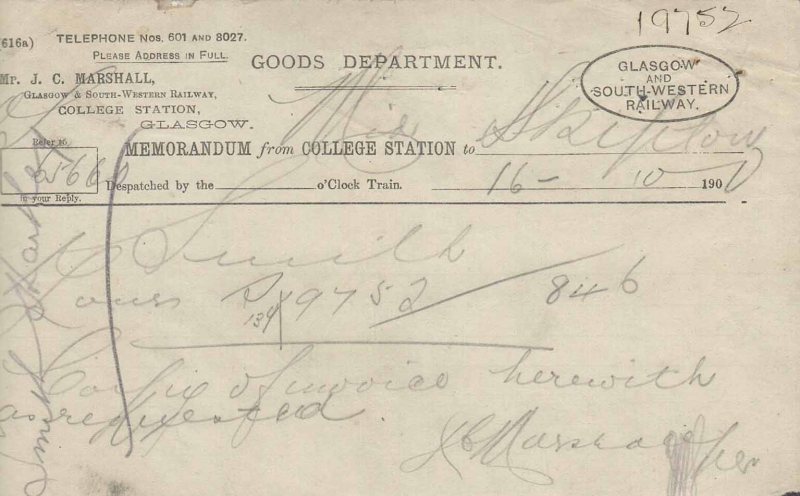 19752
616a)
TELEPHONE NOS. 601 AND 8027.
PLEASE ADDRESS IN FULL.
Mr. J. C. MARSHALL,
GLASGOW & SOUTH-WESTERN RAILWAY,
COLLEGE STATION,
GLASGOW.
GOODS DEPARTMENT.
GLASGOW
AND
SOUTH-WESTERN
RAILWAY.
Refer to
in your Reply.
MEMORANDUM from COLLEGE STATION to
Despatched by the o'Clock Train. 16 - 10 190
Smith
yours 19752 / 846
134
Copy of invoice herewith
as requested.
JC Marshall